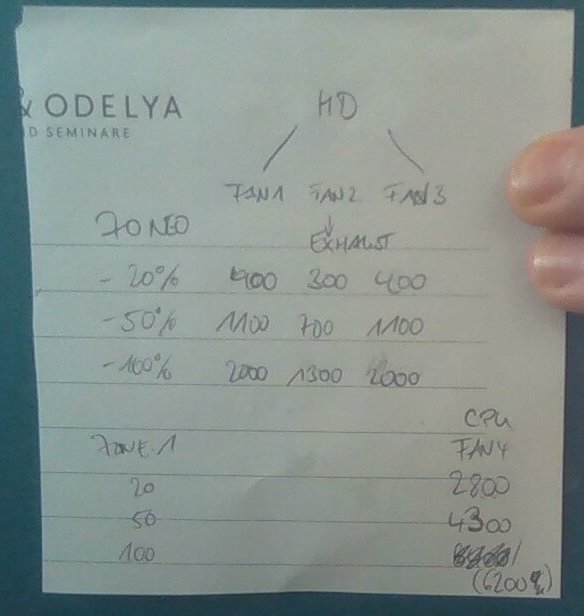 & ODELYA
D SEMINARE
HD
FAN1 FAN2 FAN3
ZONE0 EXHAUST
- 20% 400 300 400
- 50% 1100 700 1100
- 100% 2000 1300 2000
CPU
ZONE 1 FAN4
20 2800
50 4300
100
(6200)